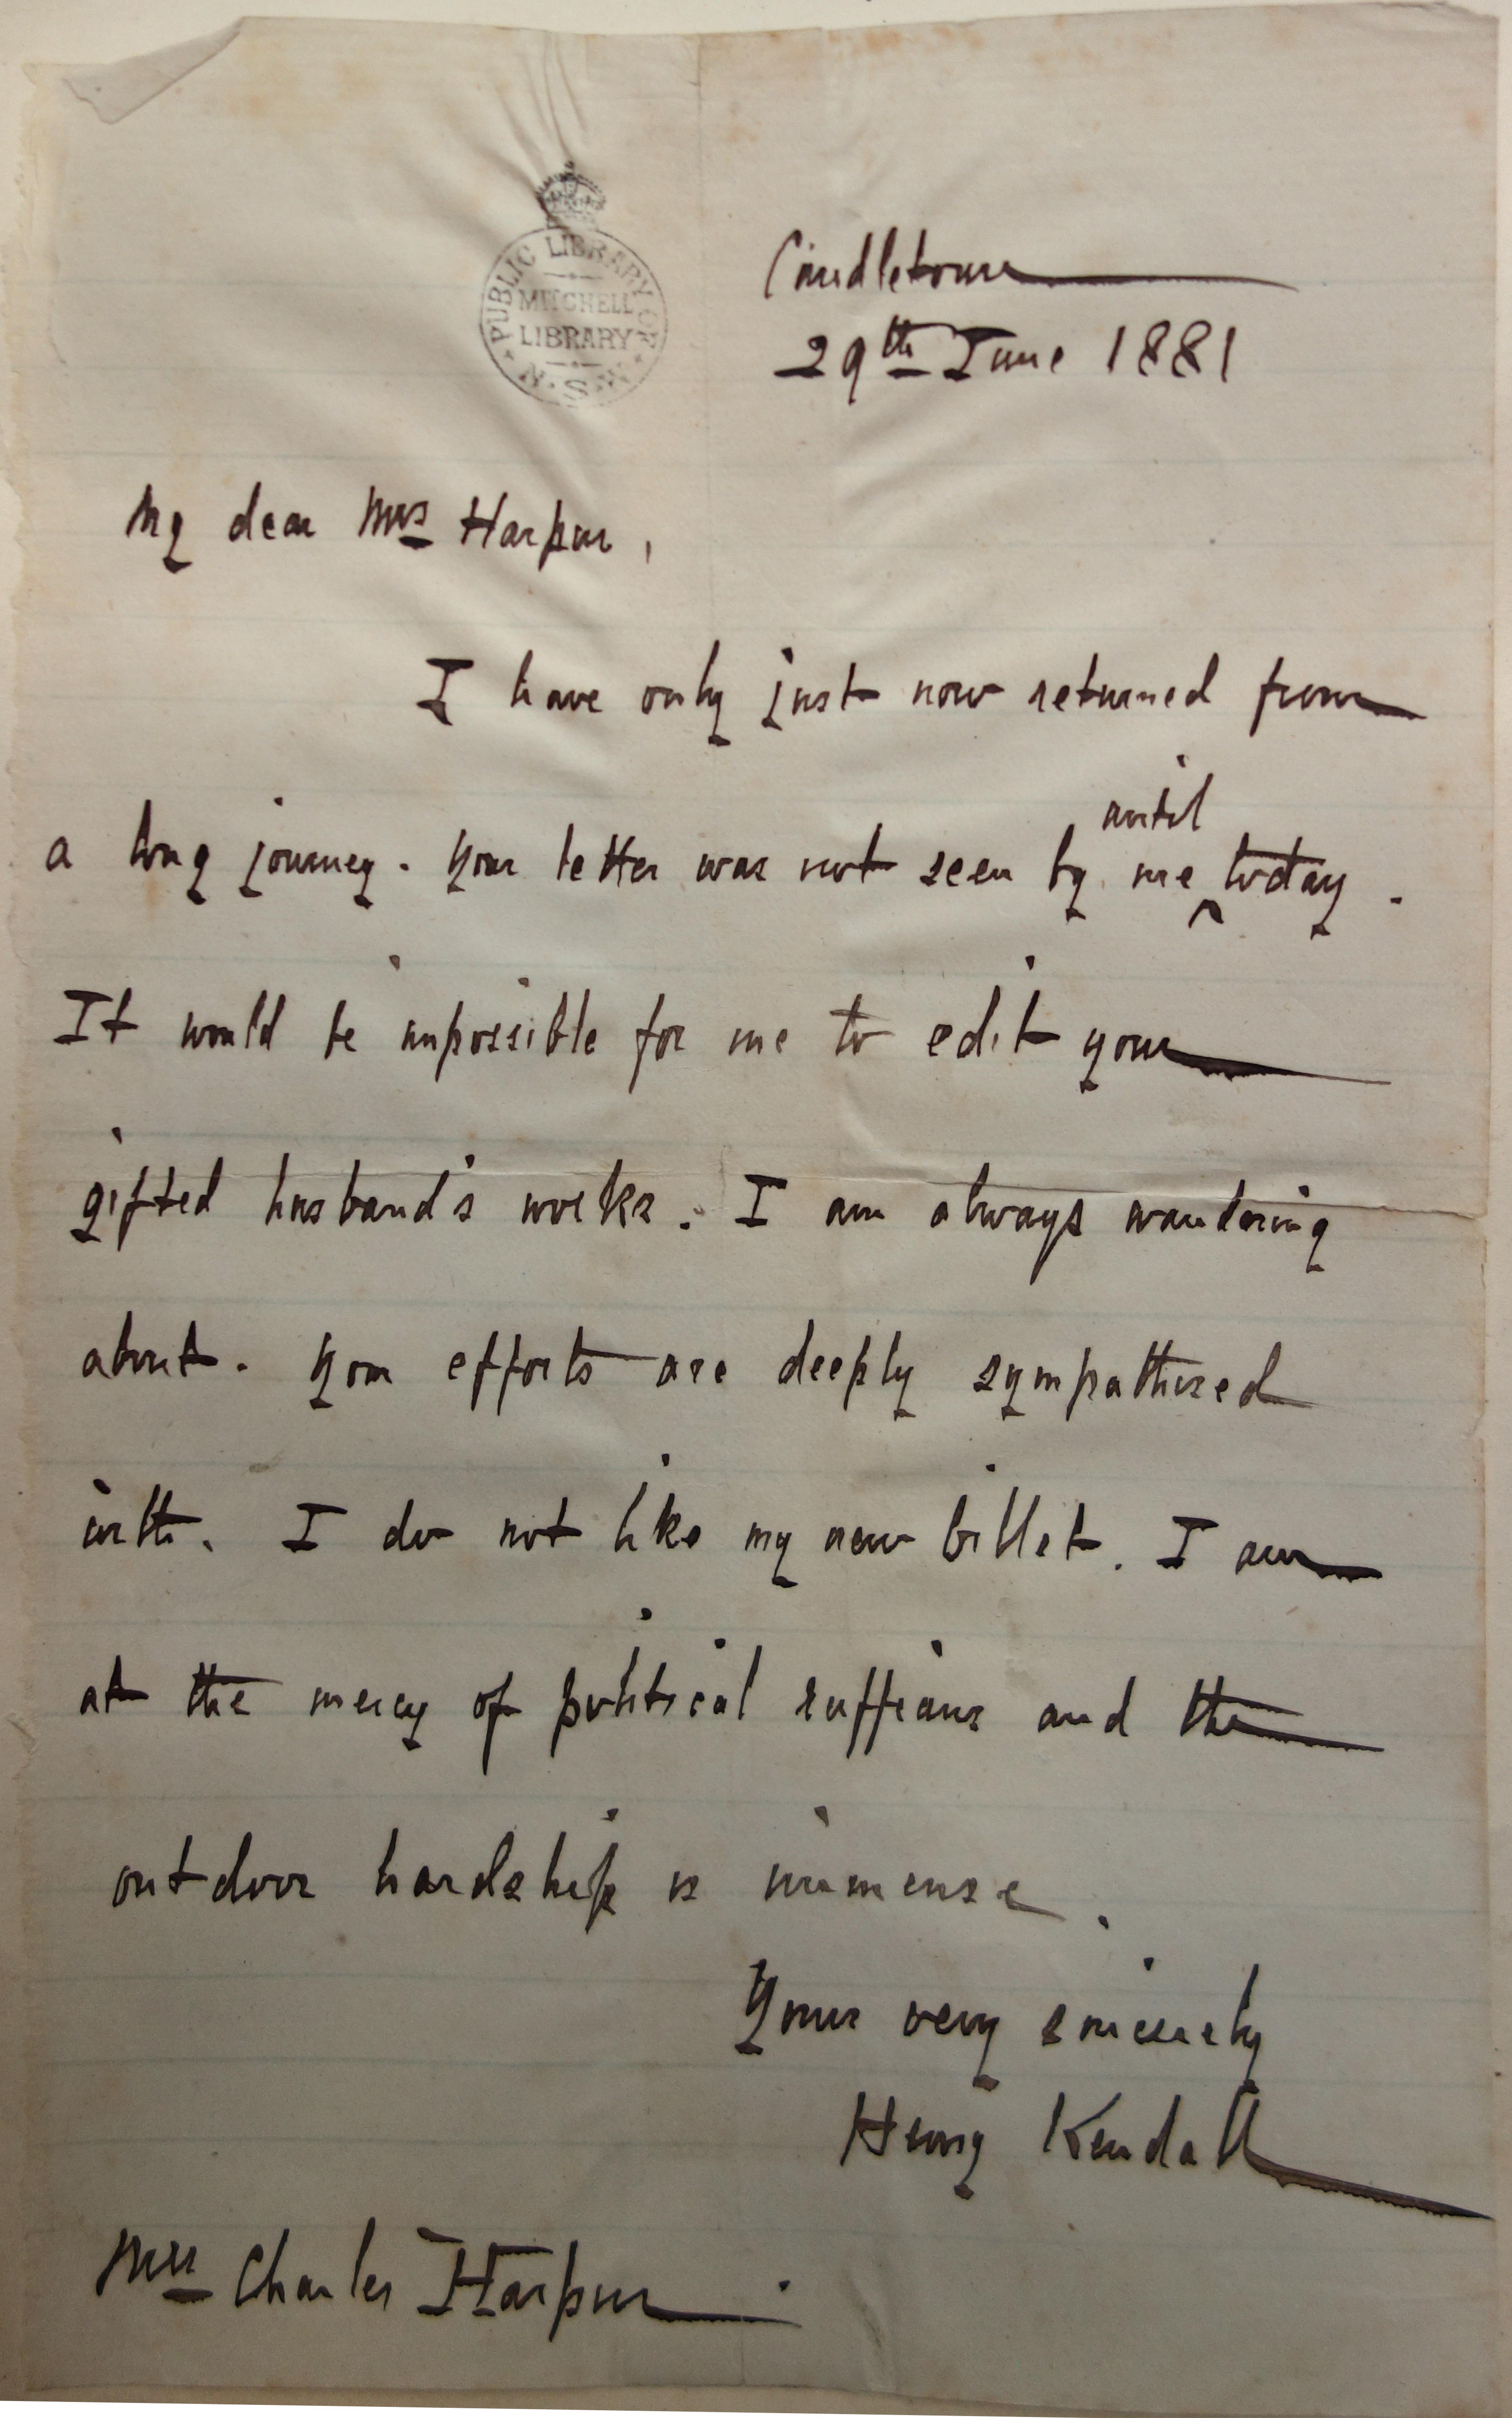 PUBLIC LIBRARY OF N.S.W.
MITCHELL
LIBRARY
Cundletown
29th June 1881
My dear Mrs Harpur,
I have only just now returned from
a long journey. Your letter was not seen by me until today.
It would be impossible for me to edit your
gifted husband's works. I am always wandering
about. Your efforts are deeply sympathised
with. I do not like my new billet. I am
at the mercy of political ruffians and the
outdoor hardship is immense.
Yours very sincerely
Henry Kendall
Mrs Charles Harpur.